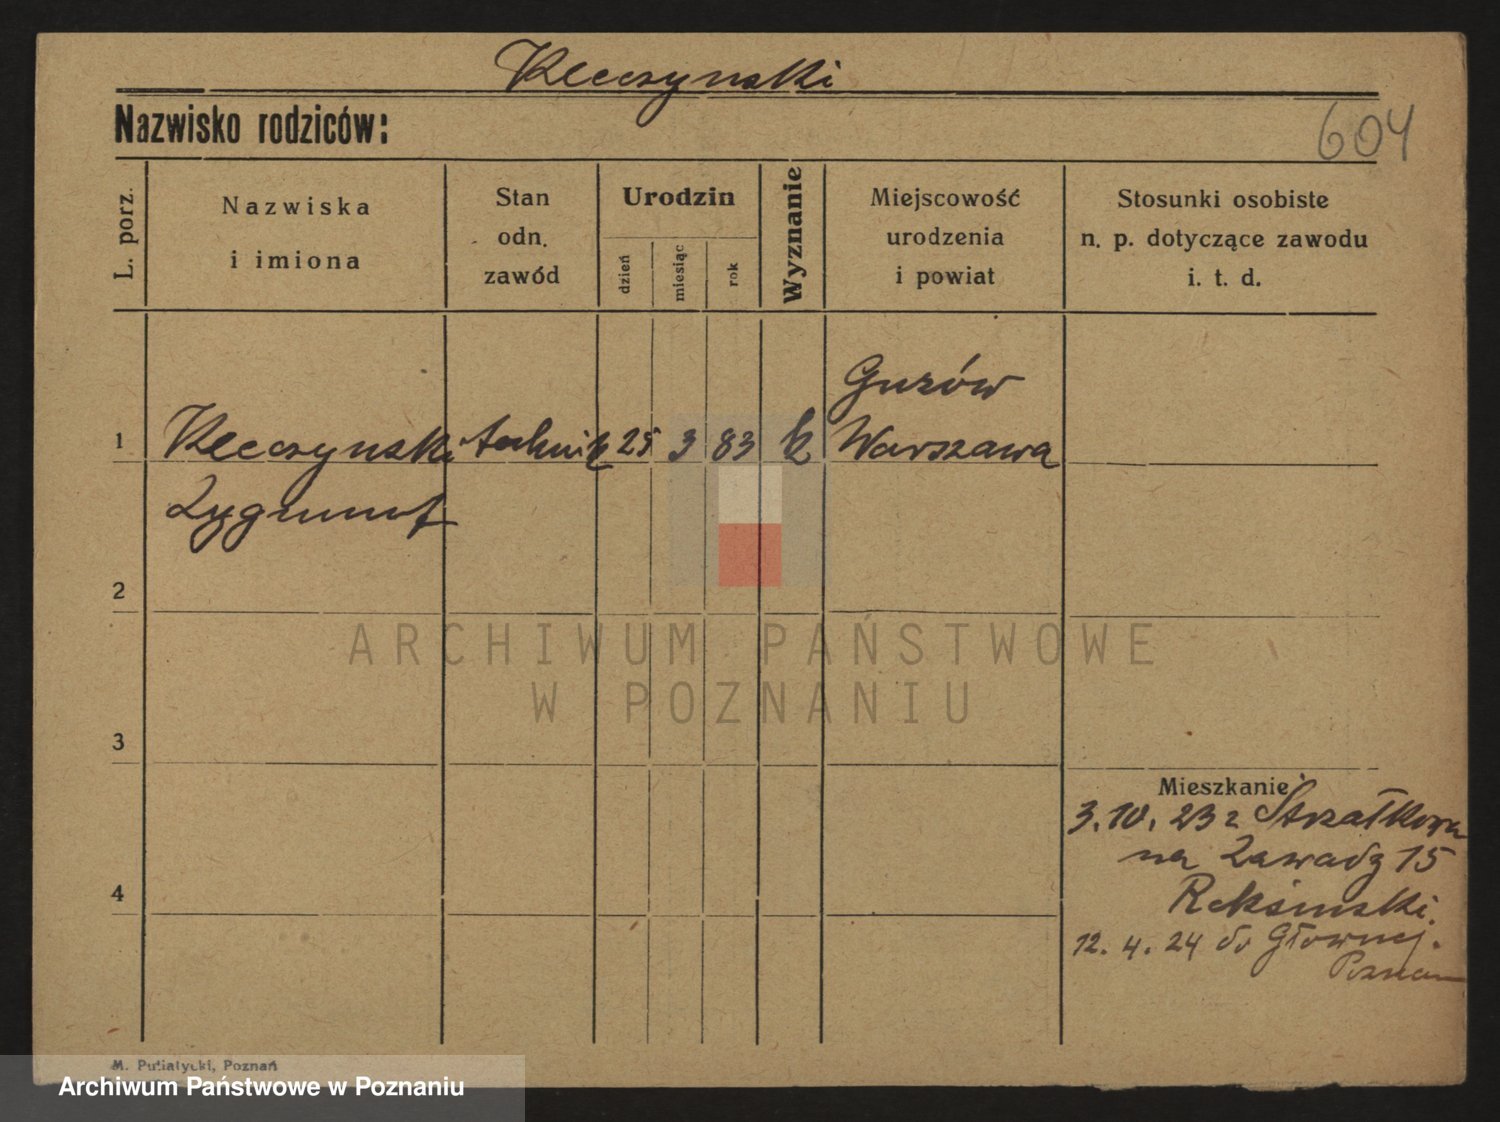 Kleczynski
Nazwisko rodziców:
604
L. porz.
Nazwiska
i imiona
Stan
odn.
zawód
Urodzin
dzień
miesiąc
rok
Wyznanie
Miejscowość
urodzenia
i powiat
Stosunki osobiste
n. p. dotyczące zawodu
i. t. d.
Guzów
1 Kleczynski technik 25 3 83 k Warszawa
Zygmunt
2
ARCHIWUM PAŃSTWOWE
W POZNANIU
3
Mieszkanie
3. 10. 23 z Strzałkowa
na Zawady 15
4
12. 4. 24 do Głownej.
Poznan
M. Putiatycki, Poznań
Archiwum Państwowe w Poznaniu